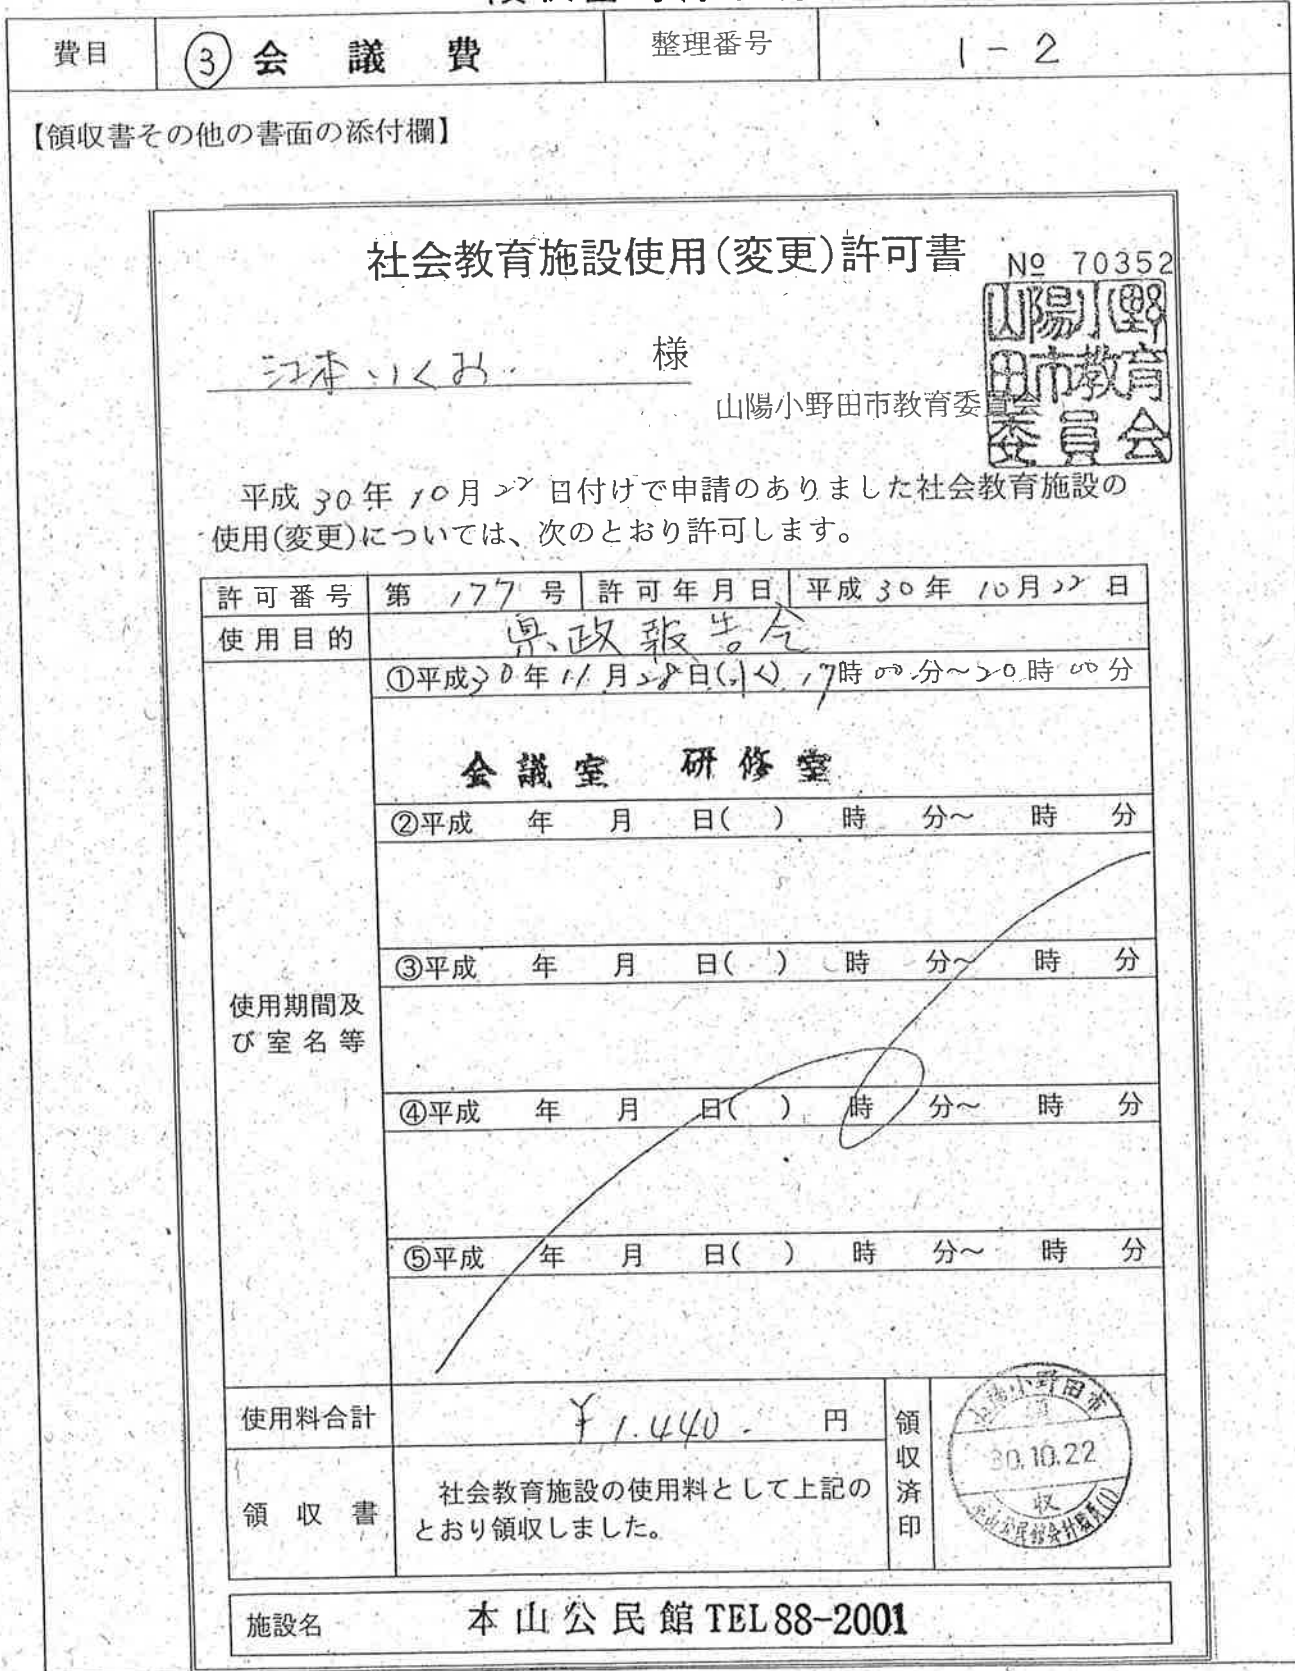 費目 ③ 会議費 整理番号 1-2
【領収書その他の書面の添付欄】
社会教育施設使用(変更)許可書
№ 70352
江本いくお 様
山陽小野田市教育委員会
山陽小野田市教育委員会
平成30年10月22日付けで申請のありました社会教育施設の
使用(変更)については、次のとおり許可します。
許可番号 第177号 許可年月日 平成30年10月22日
使用目的 県政報告会
使用期間及び室名等
①平成30年11月28日(水)17時00分~20時00分
会議室 研修室
②平成 年 月 日( ) 時 分~ 時 分
③平成 年 月 日( ) 時 分~ 時 分
④平成 年 月 日( ) 時 分~ 時 分
⑤平成 年 月 日( ) 時 分~ 時 分
使用料合計 ¥1.440. 円
領収書 社会教育施設の使用料として上記の
とおり領収しました。
領収済印
山陽小野田市
領
30.10.22
収
本山公民館会計職員(1)
施設名 本山公民館 TEL 88-2001